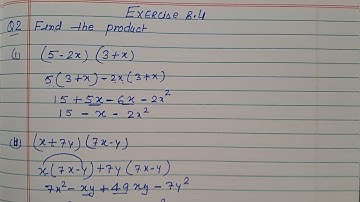 Exercise 8.4
Q2 Find the product
(i) (5-2x) (3+x)
5(3+x)-2x(3+x)
15 + 5x - 6x - 2x²
15 - x - 2x²
(ii) (x+7y) (7x-y)
x(7x-y)+7y(7x-y)
7x² - xy + 49xy - 7y²